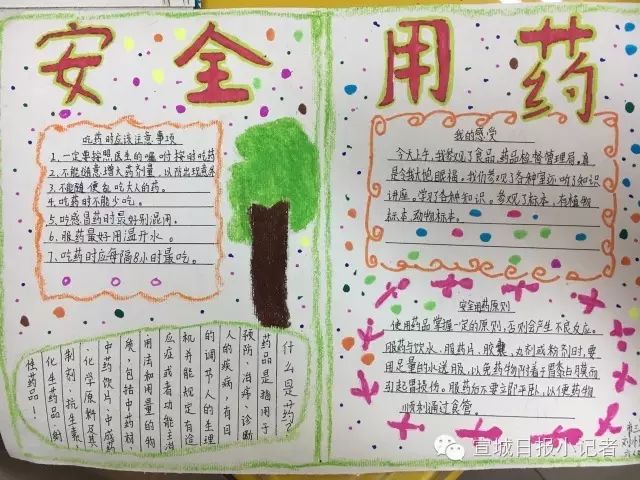 安全用药
吃药时应该注意事项
1.一定要按照医生的嘱咐按时吃药
2.不能随意增大药剂量,以防出现意外
3.不能随便乱吃大人的药。
4.吃药时不能少吃。
5.吃感冒药时最好别混用。
6.服药最好用温开水。
7.吃药时应每隔8小时最吃。
什么是药?
药品是指用于
预防、治疗、诊断
人的疾病,有目
的调节人的生理
机并能规定有适
应症或者功能主治
用法和用量的物
质,包括中药材、
中药饮片、中成药
、化学原料及其
制剂、抗生素、
化生药品、射
性药品!
我的感受
今天上午,我参观了食品、药品检督管理局。真
是令我大饱眼福。我们参观了各种室还听了知识
讲座。学习了各种知识。参观了标本,有植物
标本,动物标本。
安全用药原则
使用药品掌握一定的原则,否则会产生不良反应。
服药与饮水、服药片、胶囊、丸剂或粉剂时,要
用足量的水送服,以免药物附着于胃黏白膜而
引起胃损伤。服药后不要立即平卧,以便药物
顺利通过食管。
宣城日报小记者